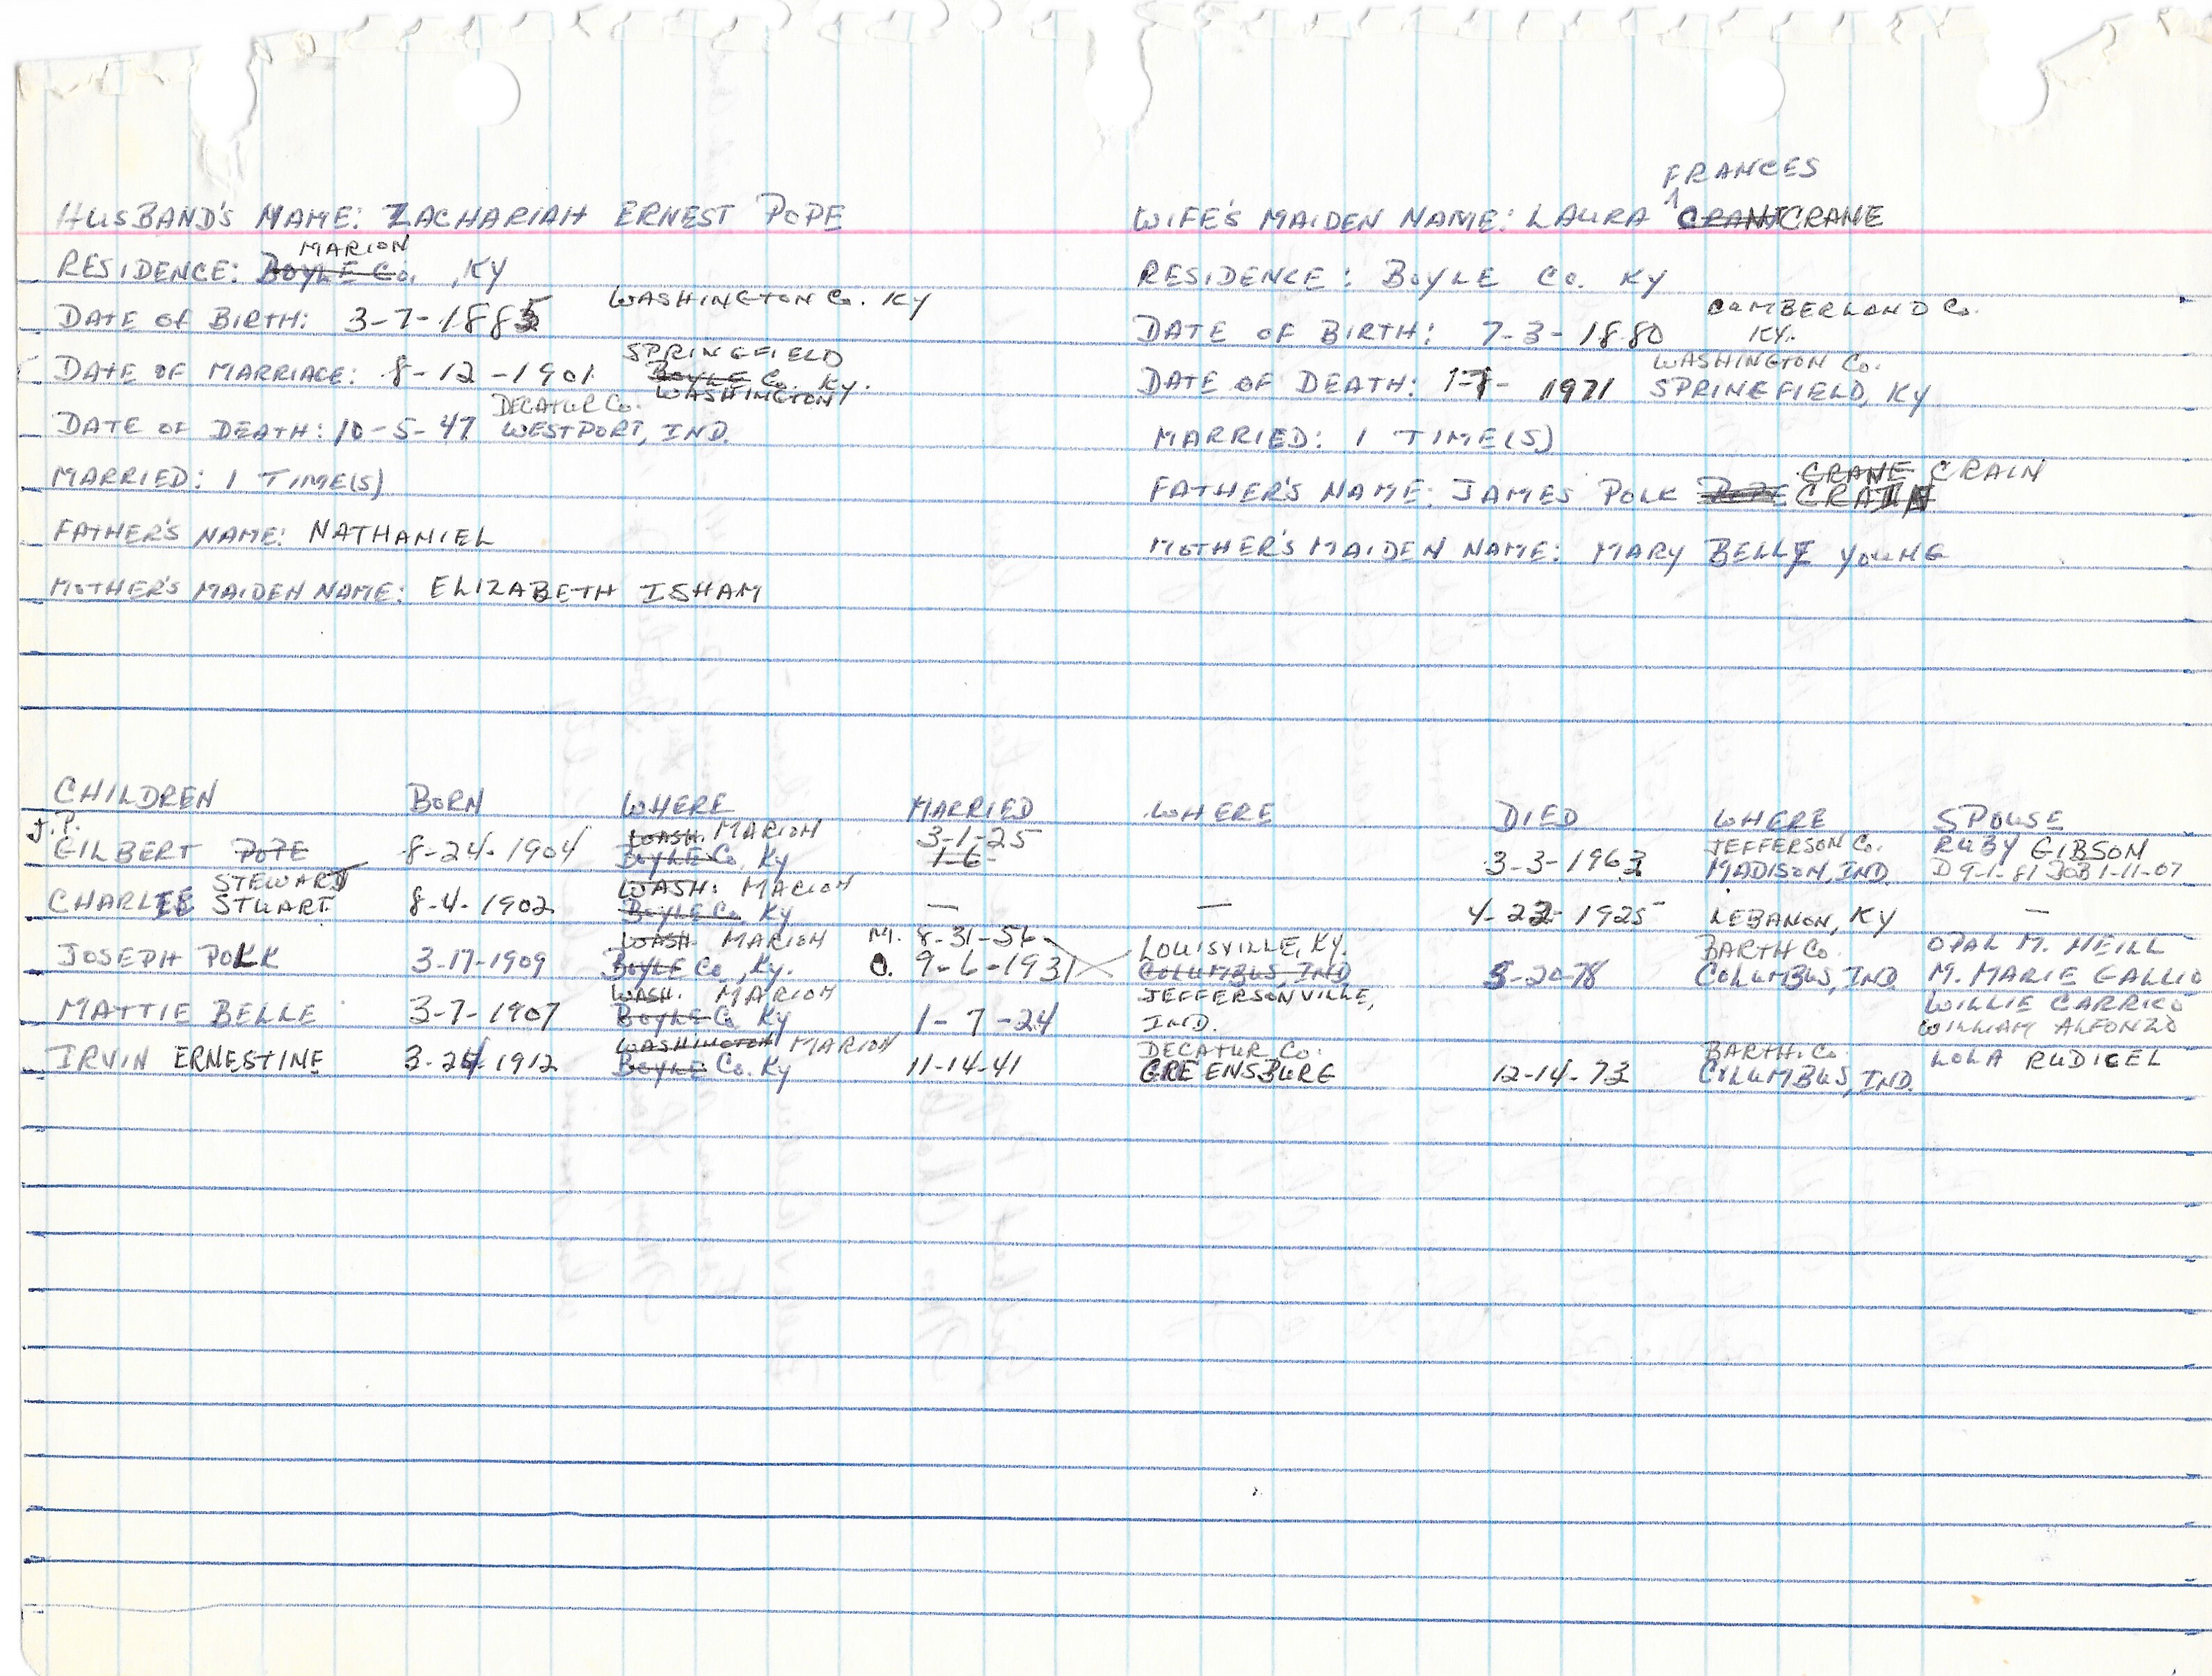 FRANCES
HUSBAND'S NAME: ZACHARIAH ERNEST POPE
WIFE'S MAIDEN NAME: LAURA CRANE
MARION
RESIDENCE: BOYLE Co. , KY
RESIDENCE: BOYLE Co. KY
WASHINGTON Co. KY
DATE OF BIRTH: 3-7-1885
CUMBERLAND Co.
DATE OF BIRTH: 7-3-1880 KY.
SPRINGFIELD
DATE OF MARRIAGE: 8-12-1901 BOYLE Co. KY.
WASHINGTON
WASHINGTON Co.
DATE OF DEATH: 1-7- 1971 SPRINGFIELD, KY
DECATUR Co.
DATE OF DEATH: 10-5-47 WESTPORT, IND.
MARRIED: 1 TIME(S)
MARRIED: 1 TIME(S)
CRANE CRAIN
FATHER'S NAME: JAMES POLK CRAIN
FATHER'S NAME: NATHANIEL
MOTHER'S MAIDEN NAME: MARY BELLE YOUNG
MOTHER'S MAIDEN NAME: ELIZABETH ISHAM
CHILDREN BORN WHERE MARRIED WHERE DIED WHERE SPOUSE
J.P. WASH. MARION 3-1-25 JEFFERSON Co. RUBY GIBSON
GILBERT POPE 8-24-1904 BOYLE Co. KY 1-6- 3-3-1963 MADISON, IND. D 9-1-81 DOB 1-11-07
STEWART WASH. MARION
CHARLIE STUART 8-4-1902 BOYLE Co. KY — — 4-22-1925 LEBANON, KY —
WASH. MARION M. 8-31-56 LOUISVILLE, KY. BARTH Co. OPAL M. NEILL
JOSEPH POLK 3-17-1909 BOYLE Co., KY. O. 9-6-1931 COLUMBUS, IND 5-20-78 COLUMBUS, IND M. MARIE GALLIO
WASH. MARION JEFFERSONVILLE, WILLIE CARRICO
MATTIE BELLE 3-7-1907 BOYLE Co KY 1-7-24 IND. WILLIAM ALFONZO
WASHINGTON MARION DECATUR Co. BARTH. Co.
IRVIN ERNESTINE 3-24-1912 BOYLE Co. KY 11-14-41 GREENSBURG 12-14-73 COLUMBUS, IND. LOLA RUDICEL